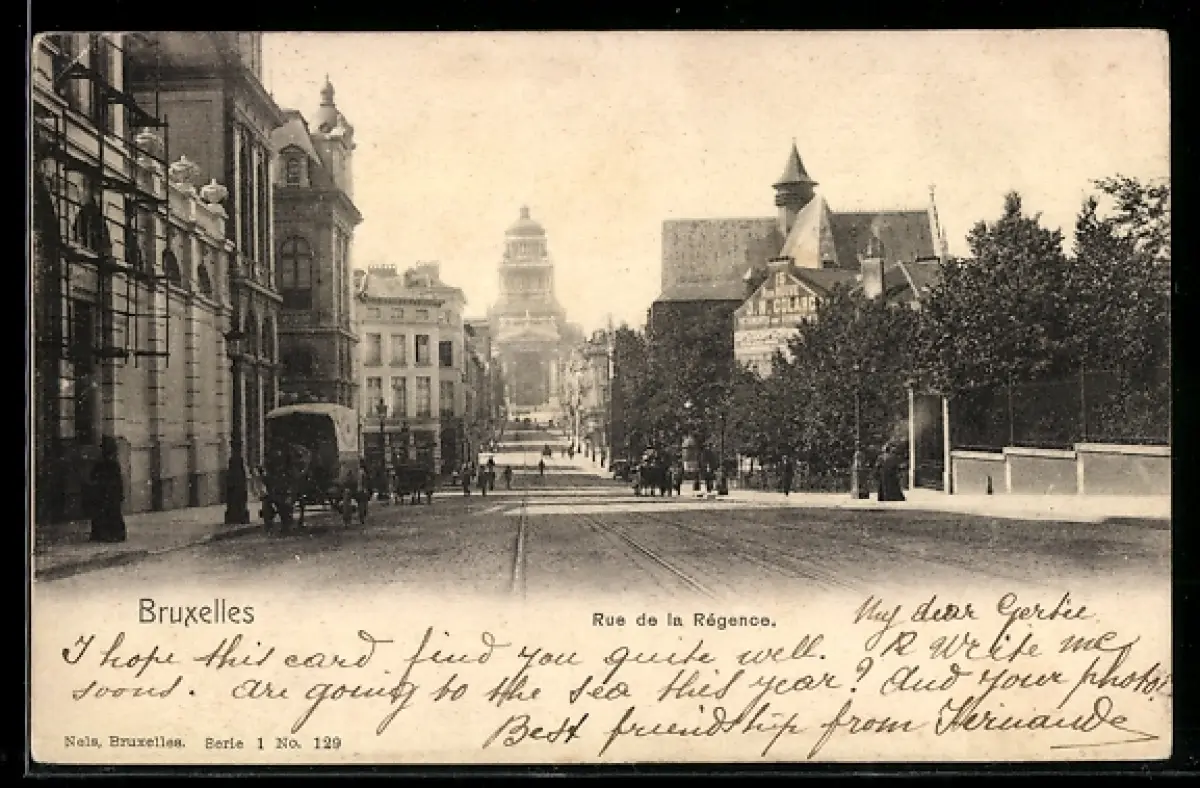 Bruxelles
Rue de la Régence.
My dear Gertie
I hope this card find you quite well. & Write me
soon. are going to the sea this year? and your photo?
Best friendship from Fernande
Nels, Bruxelles. Serie 1 No. 129